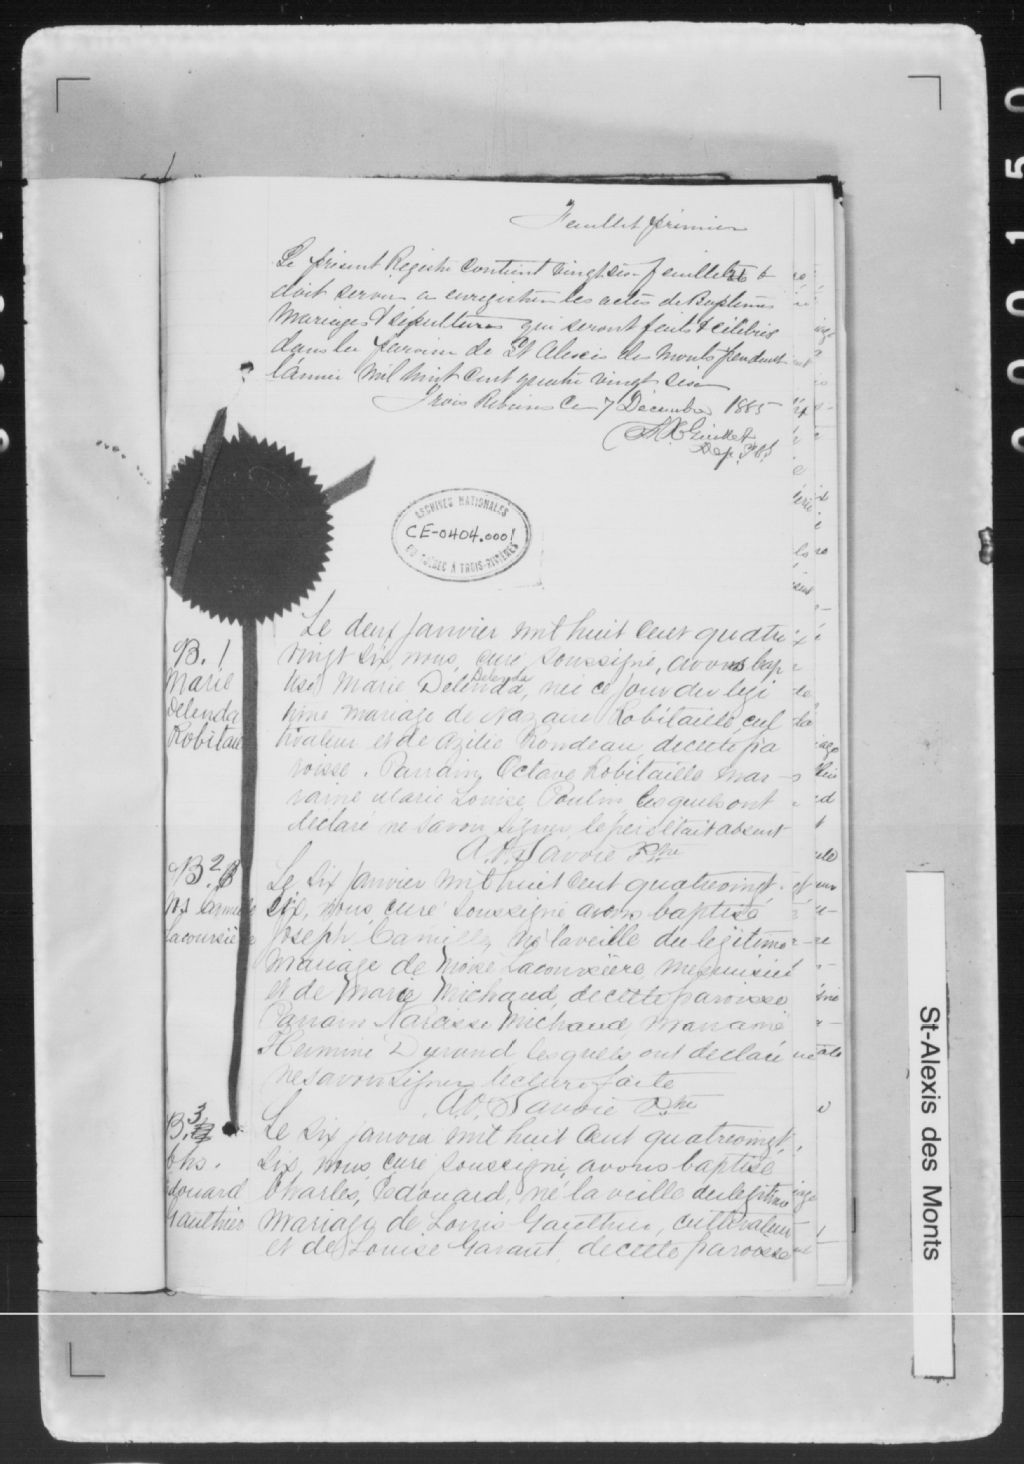 Feuillet premier
Le présent Registre contient vingt six feuillets &
doit servir a enregistrer les actes de Baptêmes
Mariages & sépultures qui seront faits & célébrés
dans la paroisse de St Alexis des Monts pendant
l'année mil huit cent quatre vingt six
Trois Rivières ce 7 Décembre 1885
Dep.
ARCHIVES NATIONALES
CE-0404.0001
DU QUÉBEC À TROIS-RIVIÈRES
B. 1
Marie
Delenda
Robitaille
Le deux janvier mil huit cent quatre
vingt six, nous, curé soussigné, avons bap
tisé Marie Delenda, née ce jour du légi
Delenda
time mariage de Nazaire Robitaille, cul
tivateur et de Azilie Rondeau, de cette pa
roisse. Parrain, Octave Robitaille mar
raine Marie Louise Poulin lesquels ont
déclaré ne savoir signer, le père était absent
A. O. Savoie Ptre
B. 2
Jos Camille
Lacoursière
Le six janvier mil huit cent quatrevingt
six, nous, curé soussigné avons baptisé
Joseph, Camille, né la veille du légitime
mariage de Moïse Lacoursière, menuisier
et de Marie Michaud, de cette paroisse
Parrain Narcisse Michaud, marraine
Hermine Durand lesquels ont déclaré
ne savoir signer lecture faite
A. O. Savoie Ptre
B. 3
Chs.
Edouard
Gauthier
Le six janvier mil huit cent quatrevingt
six, nous, curé soussigné, avons baptisé
Charles, Edouard, né la veille du légitime
mariage de Louis Gauthier, cultivateur
et de Louise Garant, de cette paroisse
St-Alexis des Monts